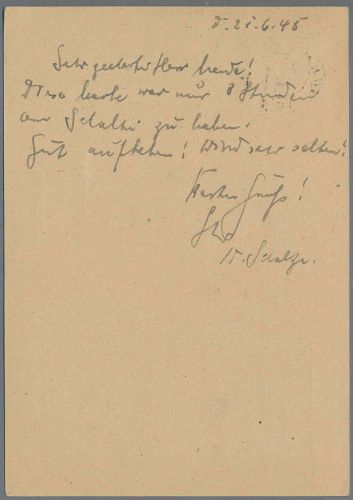 d. 25.6.45
Sehr geehrter Herr
Diese Karte war nur 3 Stunden
am Schalter zu haben.
Gut aufheben! Wird sehr selten!
Besten Gruß!
Ihr
K. Schulze.